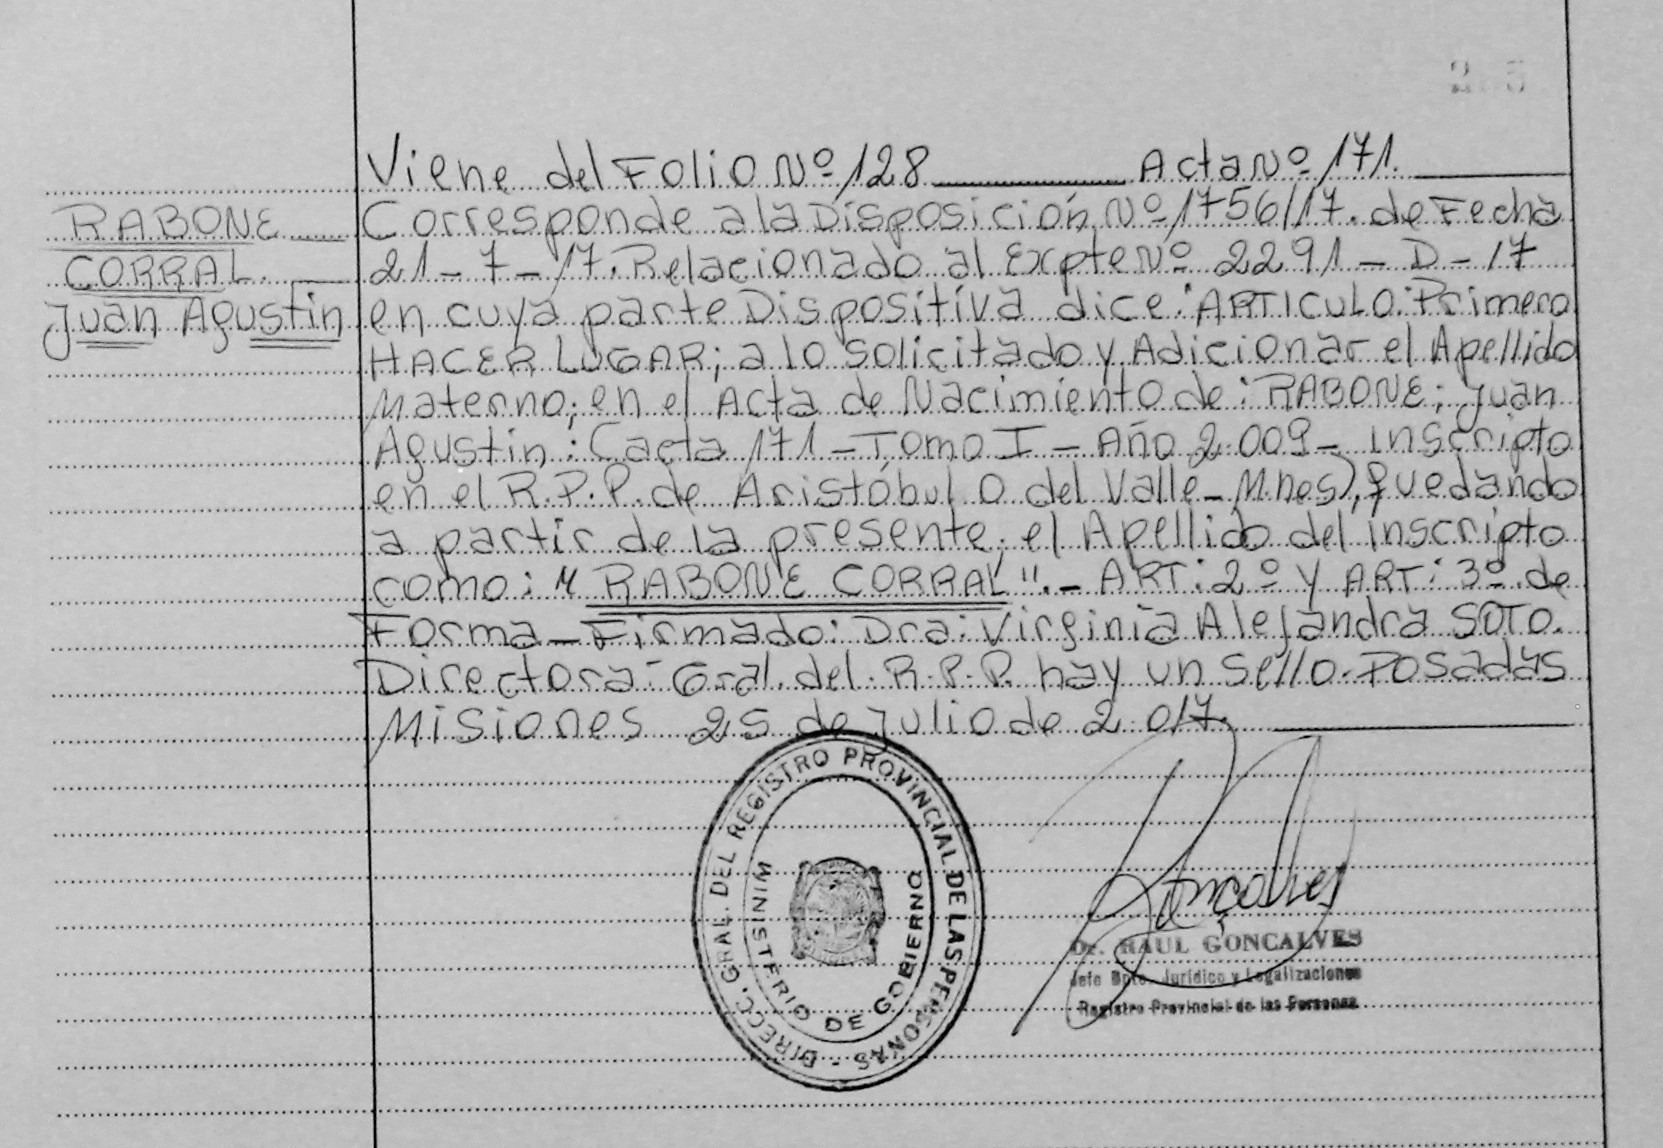 Viene del Folio Nº 128 Acta Nº 171.
RABONE
CORRAL.
Juan Agustin
Corresponde a la Disposición Nº 1756/17. de Fecha
21-7-17. Relacionado al Expte Nº 2291-D-17
en cuya parte Dispositiva dice: ARTICULO: Primero
HACER LUGAR; a lo solicitado y Adicionar el Apellido
Materno; en el Acta de Nacimiento de: RABONE; Juan
Agustin: (acta 171-Tomo I-Año 2.009- inscripto
en el R.P.P. de Aristóbulo del Valle-Mnes), quedando
a partir de la presente, el Apellido del inscripto
como: " RABONE CORRAL ".- ART: 2º y ART: 3º de
Forma-Firmado: Dra: Virginia Alejandra SOTO.
Directora: Gral. del R.P.P. hay un sello. Posadas
Misiones 25 de julio de 2.017.
DIRECC. GRAL. DEL REGISTRO PROVINCIAL DE LAS PERSONAS -
MINISTERIO DE GOBIERNO
Gonçalves
Dr. RAUL GONCALVES
Jefe Dpto. Jurídico y Legalizaciones
Registro Provincial de las Personas